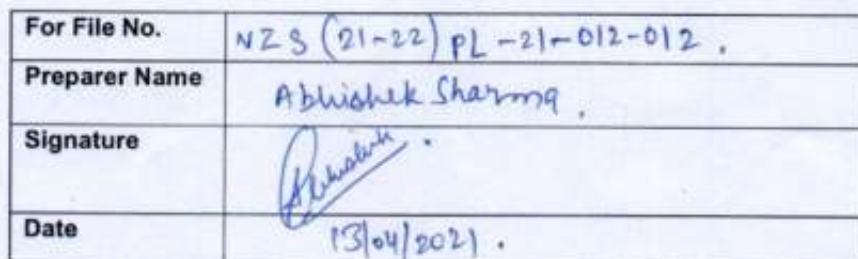 For File No. NZS (21-22) PL-21-012-012.
Preparer Name Abhishek Sharma.
Signature Abhishek.
Date 13/04/2021.